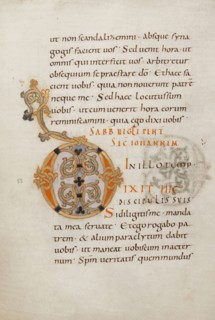 ut non scandalizemini · absque syna
gogis facient vos · Sed venit hora · ut
omnis qui interficit vos · arbitretur
obsequium se praestare dõ · Et haec fa
cient vobis · quia non noverunt patrē
neque me · Sed haec locutus sum
vobis · ut cum venerit hora eorum
reminiscamini · quia ego dixi vobis ·
SABB
SEC IOHANNEM
IN ILLO
DIXIT IHC
DISCIPULIS SUIS
Si diligitis me · manda
ta mea servate · Et ego rogabo pa
trem · & alium paraclytum dabit
vobis · ut maneat vobiscum in aeter
num · Spm veritatis quem mundus